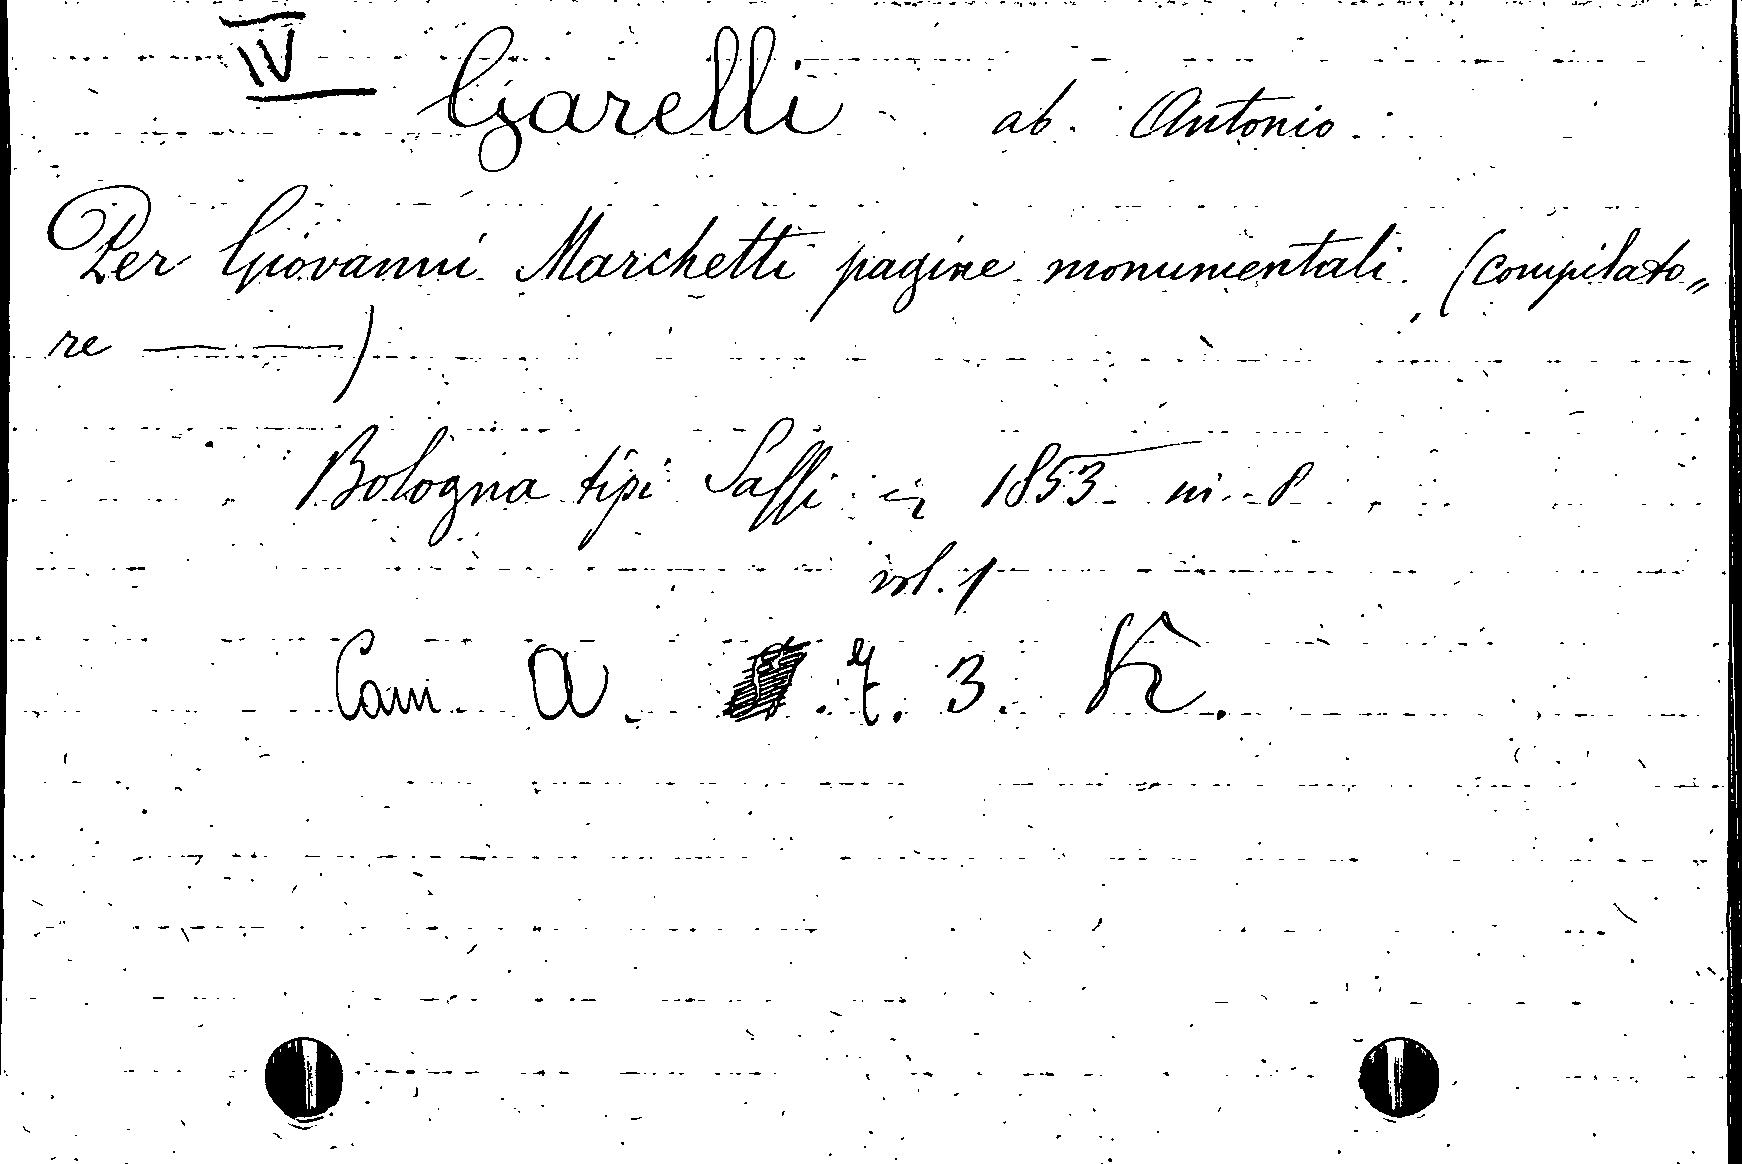 IV
Garelli ab. Antonio.
Per Giovanni Marchetti pagine monumentali. (compilato„
re — —)
Bologna tipi Saffi 1853 in-8
vol. 1
Cam. A. 7. 3. K.